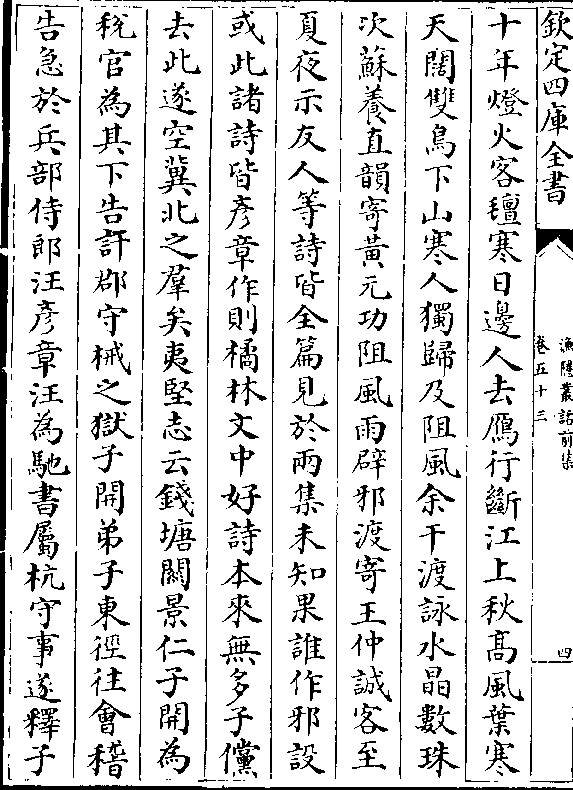 欽定四庫全書
漁隱叢話前集
卷五十三
四
十年燈火客氊寒日邊人去鴈行斷江上秋髙風葉寒
天闊雙鳥下山寒人獨歸及阻風余干渡詠水晶數珠
次蘇養直韻寄黃元功阻風雨辟邪渡寄王仲誠客至
夏夜示友人等詩皆全篇見於兩集未知果誰作邪設
或此諸詩皆彥章作則橘林文中好詩本來無多子儻
去此遂空冀北之羣矣夷堅志云錢塘關景仁子開為
稅官為其下告訐郡守械之獄子開弟子東徑往會稽
告急於兵部侍郎汪彥章汪為馳書屬杭守事遂釋子